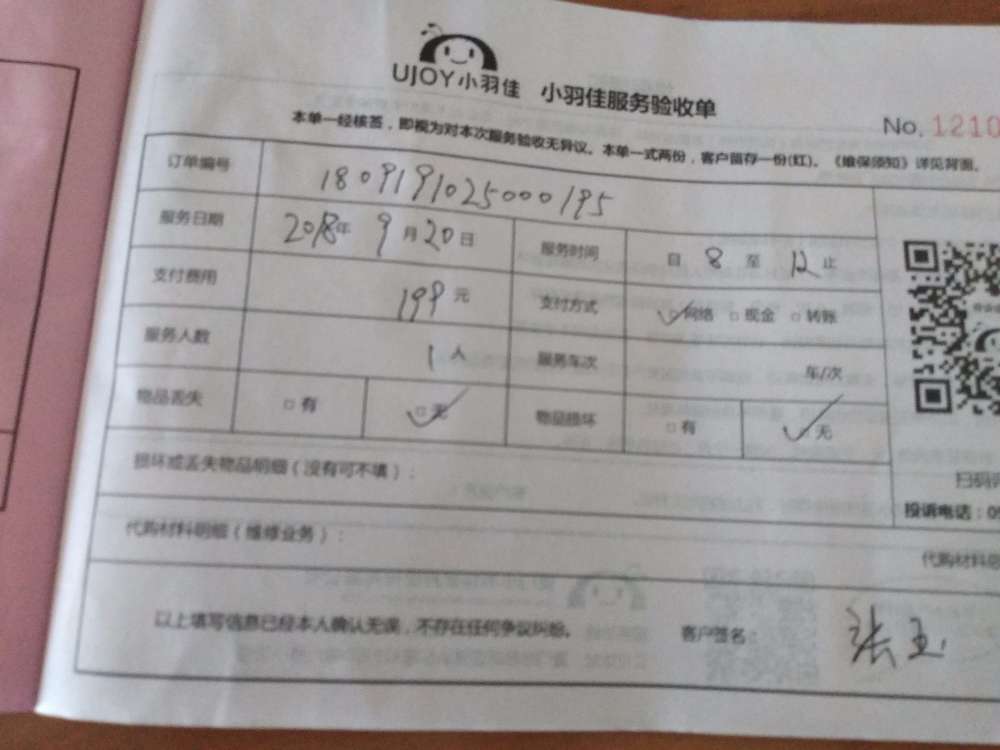 UJOY小羽佳 小羽佳服务验收单
No. 1210
本单一经核答，即视为对本次服务验收无异议。本单一式两份，客户留存一份(红)。《维保须知》详见背面。
订单编号 1809191025000195
服务日期 2018年 9月20日 服务时间 自 8 至 12 止
支付费用 199元 支付方式 ☑网络 □现金 □转账
服务人数 1人 服务车次 车/次
物品丢失 □有 ☑无 物品损坏 □有 ☑无
损坏或丢失物品明细（没有可不填）：
扫码
投诉电话：05
代购材料明细（维修业务）：
代购材料
以上填写信息已经本人确认无误，不存在任何争议纠纷。 客户签名： 张玉